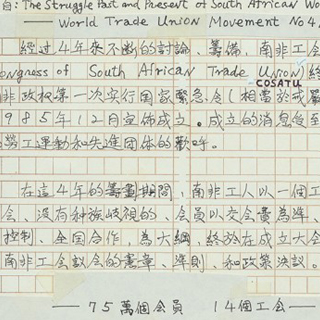 自: The Struggle Past and Present of South African Wo
— World Trade Union Movement No 4,
經过4年來不断的討論、籌備，南非工会
Congress of South African Trade Union)終
COSATU
非政权第一次实行国家緊急令(相當於戒嚴
985年12月宣佈成立。成立的消息後至
勞工運動和先進団体的歡呼。
在這4年的籌畫期間，南非工人以一個工
会、沒有种族歧視的、会員以交会費為準、
控制、全国合作，為大綱，終於在成立大会
南非工会議会的憲章、準則、和政策決议。
— 75萬個会員 14個工会 —